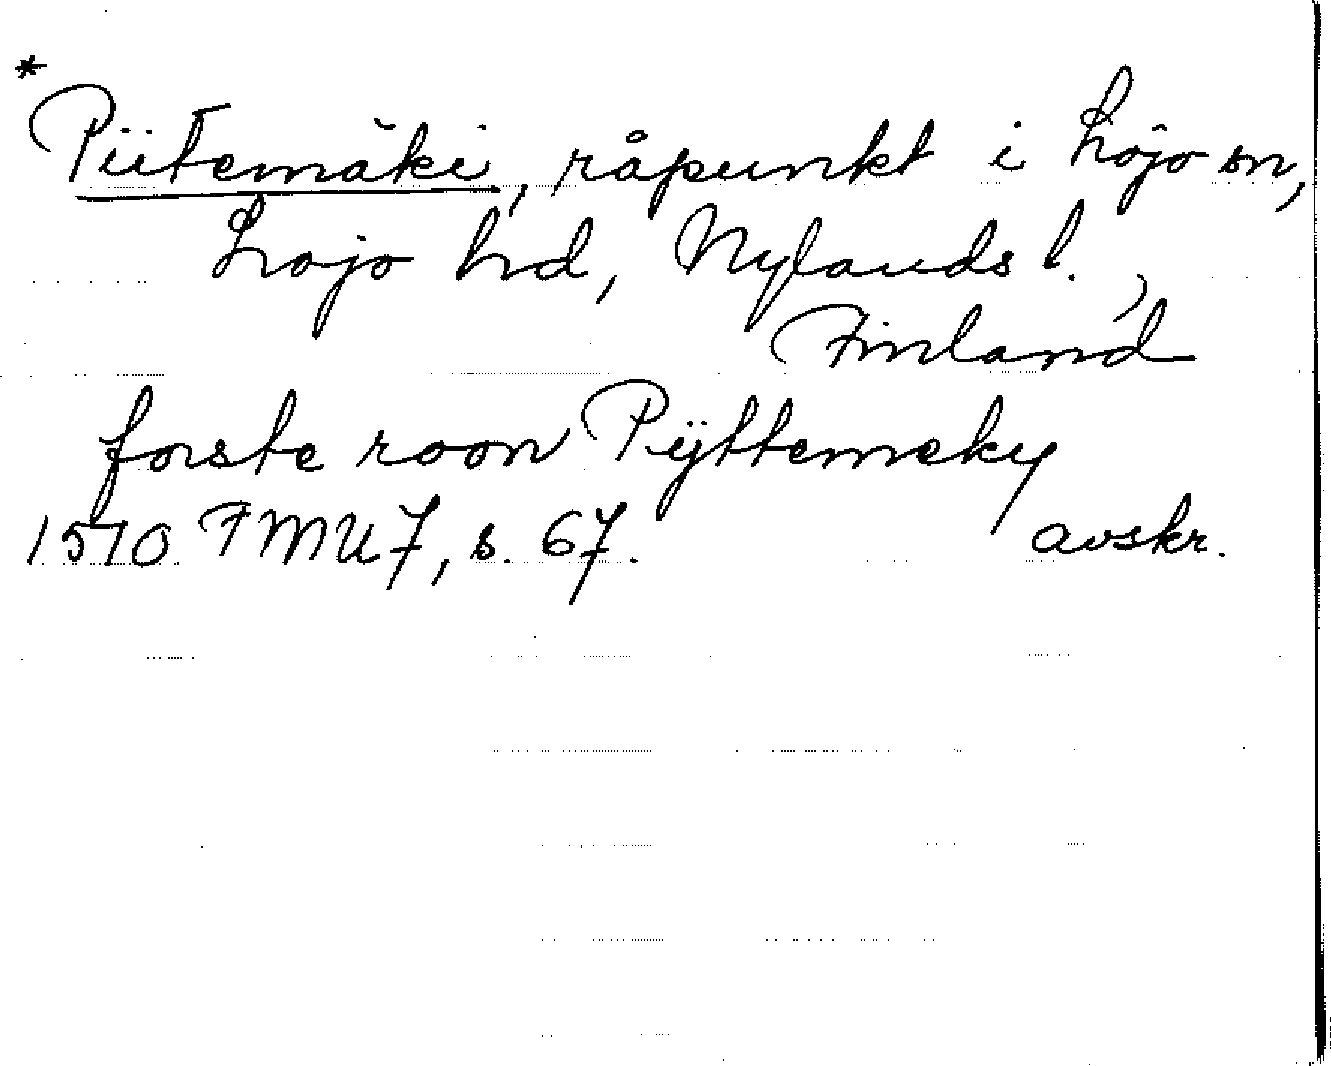 *
Piitemäki, råpunkt i Lojo sn,
Lojo hd, Nylands l.,
Finland
forste roon Pÿttemeky
1570 FMU 7, s. 67. avskr.